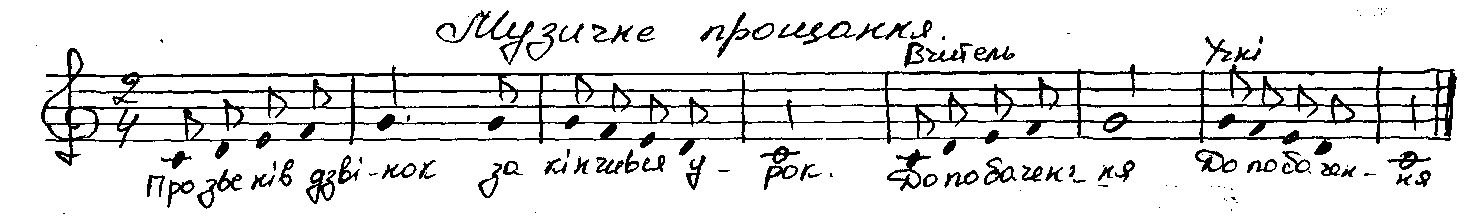 Музичне прощання.
Вчитель Учні
2
4
Прозвенів дзві-нок за кінчився у- рок. До побаченн- ня До побачен- ня